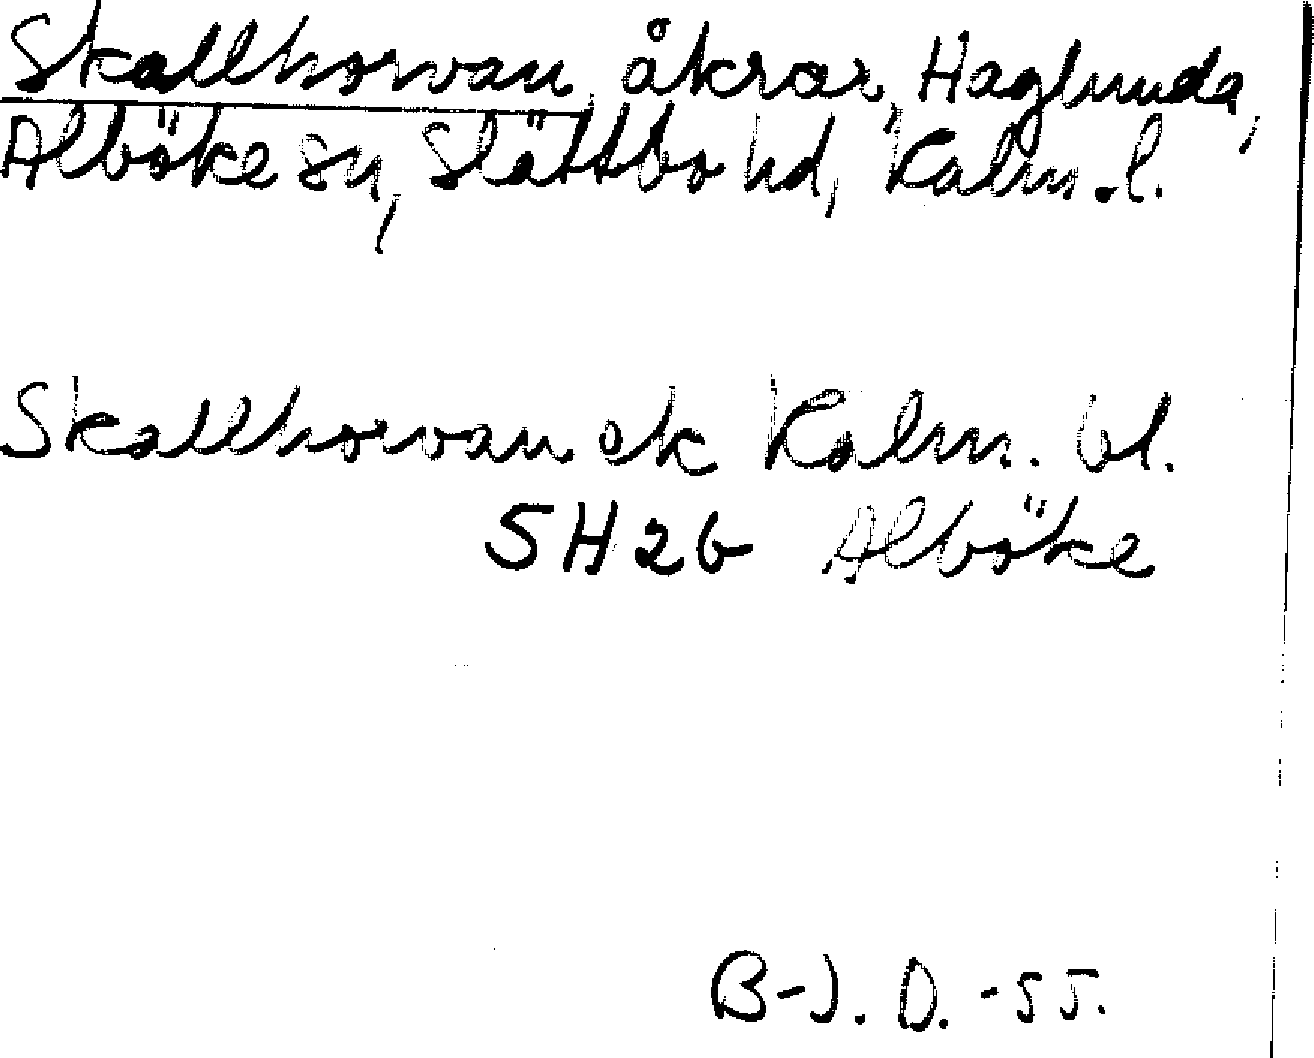 Skallhorvan, åkrar, Haglunda,
Alböke sn, Slättbo hd, Kalm. l.
Skallhorvan ek Kalm. bl.
5H2b Alböke
B-J. D. -55.